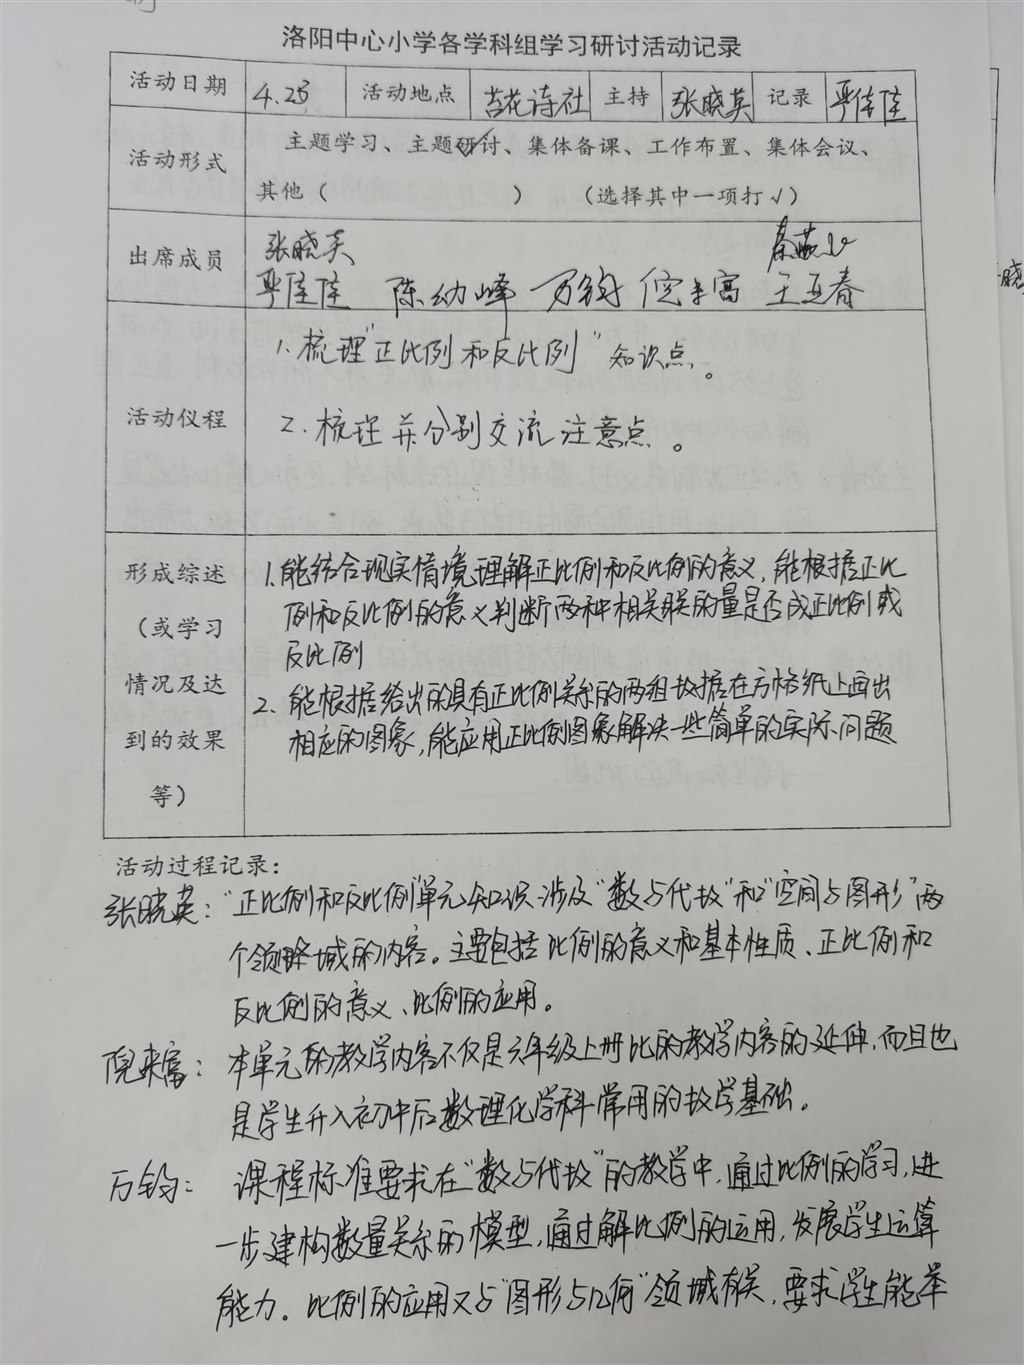 洛阳中心小学各学科组学习研讨活动记录
活动日期 4.23 活动地点 苔花诗社 主持 张晓英 记录 严佳佳
活动形式
主题学习、主题研讨、集体备课、工作布置、集体会议、
其他（ ） （选择其中一项打√）
出席成员
张晓英
严佳佳 陈幼峰 万钧 倪来富 王亚春
活动仪程
1.梳理"正比例和反比例"知识点。
2.梳理并分别交流注意点。
形成综述
（或学习
情况及达
到的效果
等）
1.能结合现实情境理解正比例和反比例的意义，能根据正比
例和反比例的意义判断两种相关联的量是否成正比例或
反比例
2、能根据给出的具有正比例关系的两组数据在方格纸上画出
相应的图象，能应用正比例图象解决一些简单的实际问题
活动过程记录：
张晓英："正比例和反比例"单元知识涉及"数与代数"和"空间与图形"两
个领域的内容。主要包括比例的意义和基本性质、正比例和
反比例的意义、比例的应用。
倪来富：本单元的教学内容不仅是六年级上册比的教学内容的延伸，而且也
是学生升入初中后数理化学科常用的数学基础。
万钧：课程标准要求在"数与代数"的教学中，通过比例的学习，进
一步建构数量关系的模型，通过解比例的运用，发展学生运算
能力。比例的应用又与"图形与几何"领域有关，要求学生能举